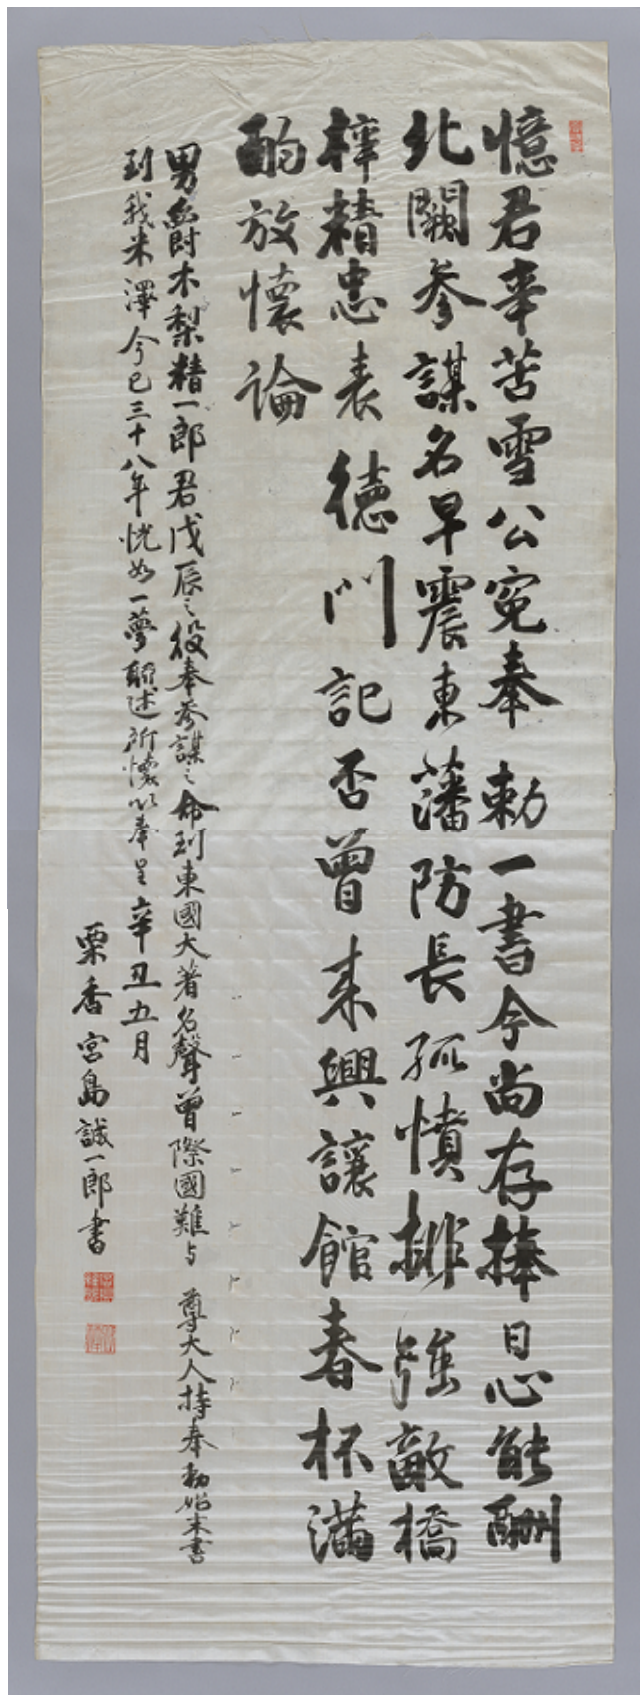 憶君辛苦雪公冤奉勅一書今尚存捧日心能酬
北闕参謀名早震東藩防長孤憤排強敵橋
梓精忠表徳門記否曽来興譲館春杯満
酌放懐論
男爵木梨精一郎君戊辰之役奉参謀之命到東國大著名聲曽際國難与尊大人持奉勅始末書
到我米澤今已三十八年恍如一夢聊述所懐以奉呈辛丑五月
栗香宮島誠一郎書